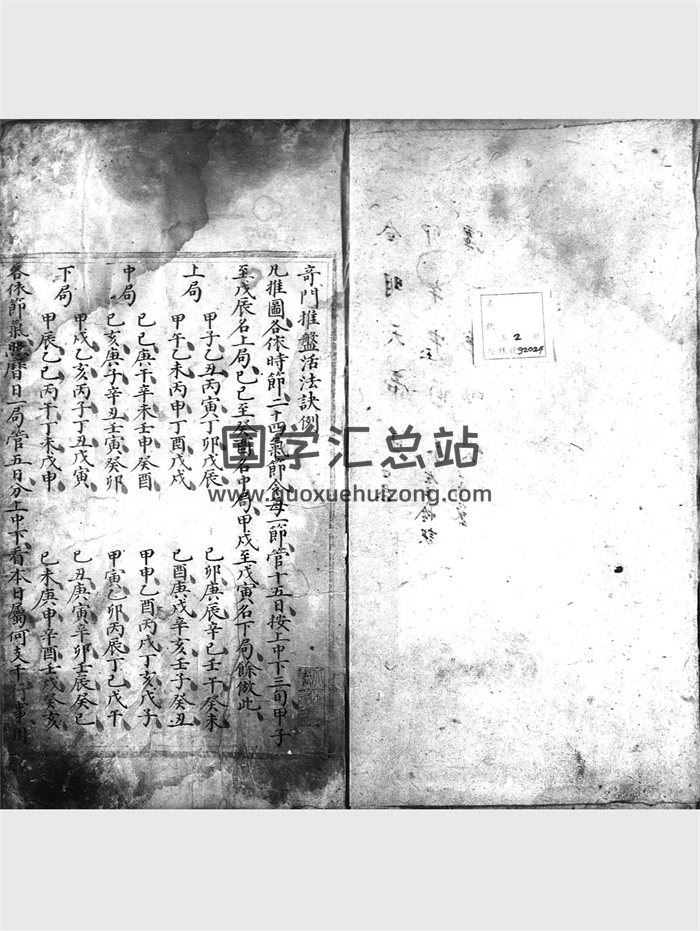 奇門推盤活法訣例
凡推圖各依時節二十四氣節令每一節管十五日按上中下三旬甲子
至戊辰名上局己巳至癸酉名中局甲戌至戊寅名下局餘倣此
上局
甲子乙丑丙寅丁卯戊辰 己卯庚辰辛巳壬午癸未
甲午乙未丙申丁酉戊戌 己酉庚戌辛亥壬子癸丑
中局
己巳庚午辛未壬申癸酉 甲申乙酉丙戌丁亥戊子
己亥庚子辛丑壬寅癸卯 甲寅乙卯丙辰丁巳戊午
下局
甲戌乙亥丙子丁丑戊寅 己丑庚寅辛卯壬辰癸巳
甲辰乙巳丙午丁未戊申 己未庚申辛酉壬戌癸亥
各依節氣曆日一局管五日分上中下看本日屬何支干
2
92024
国学汇总站
www.guoxuehuizong.com